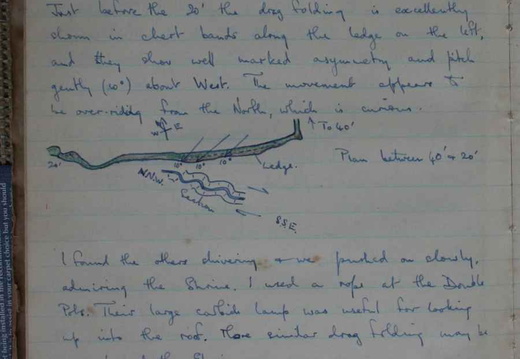 Just before the 20' the drag folding is excellently
shown in chert bands along the ledge on the left,
and they show well marked asymmetry and pitch
gently (10°) about West. The movement appears to
be over-riding from the North, which is curious.
E
↑ To 40'
20'
10° 10° 10°
Ledge.
Plan between 40' + 20'
NNW.
Section
SSE.
I found the others shivering + we pushed on slowly,
admiring the Shrine. I used a rope at the Double
Pots. Their large carbide lamp was useful for looking
up into the roof. More similar drag folding may be
being installed in the
carpet choice but you should